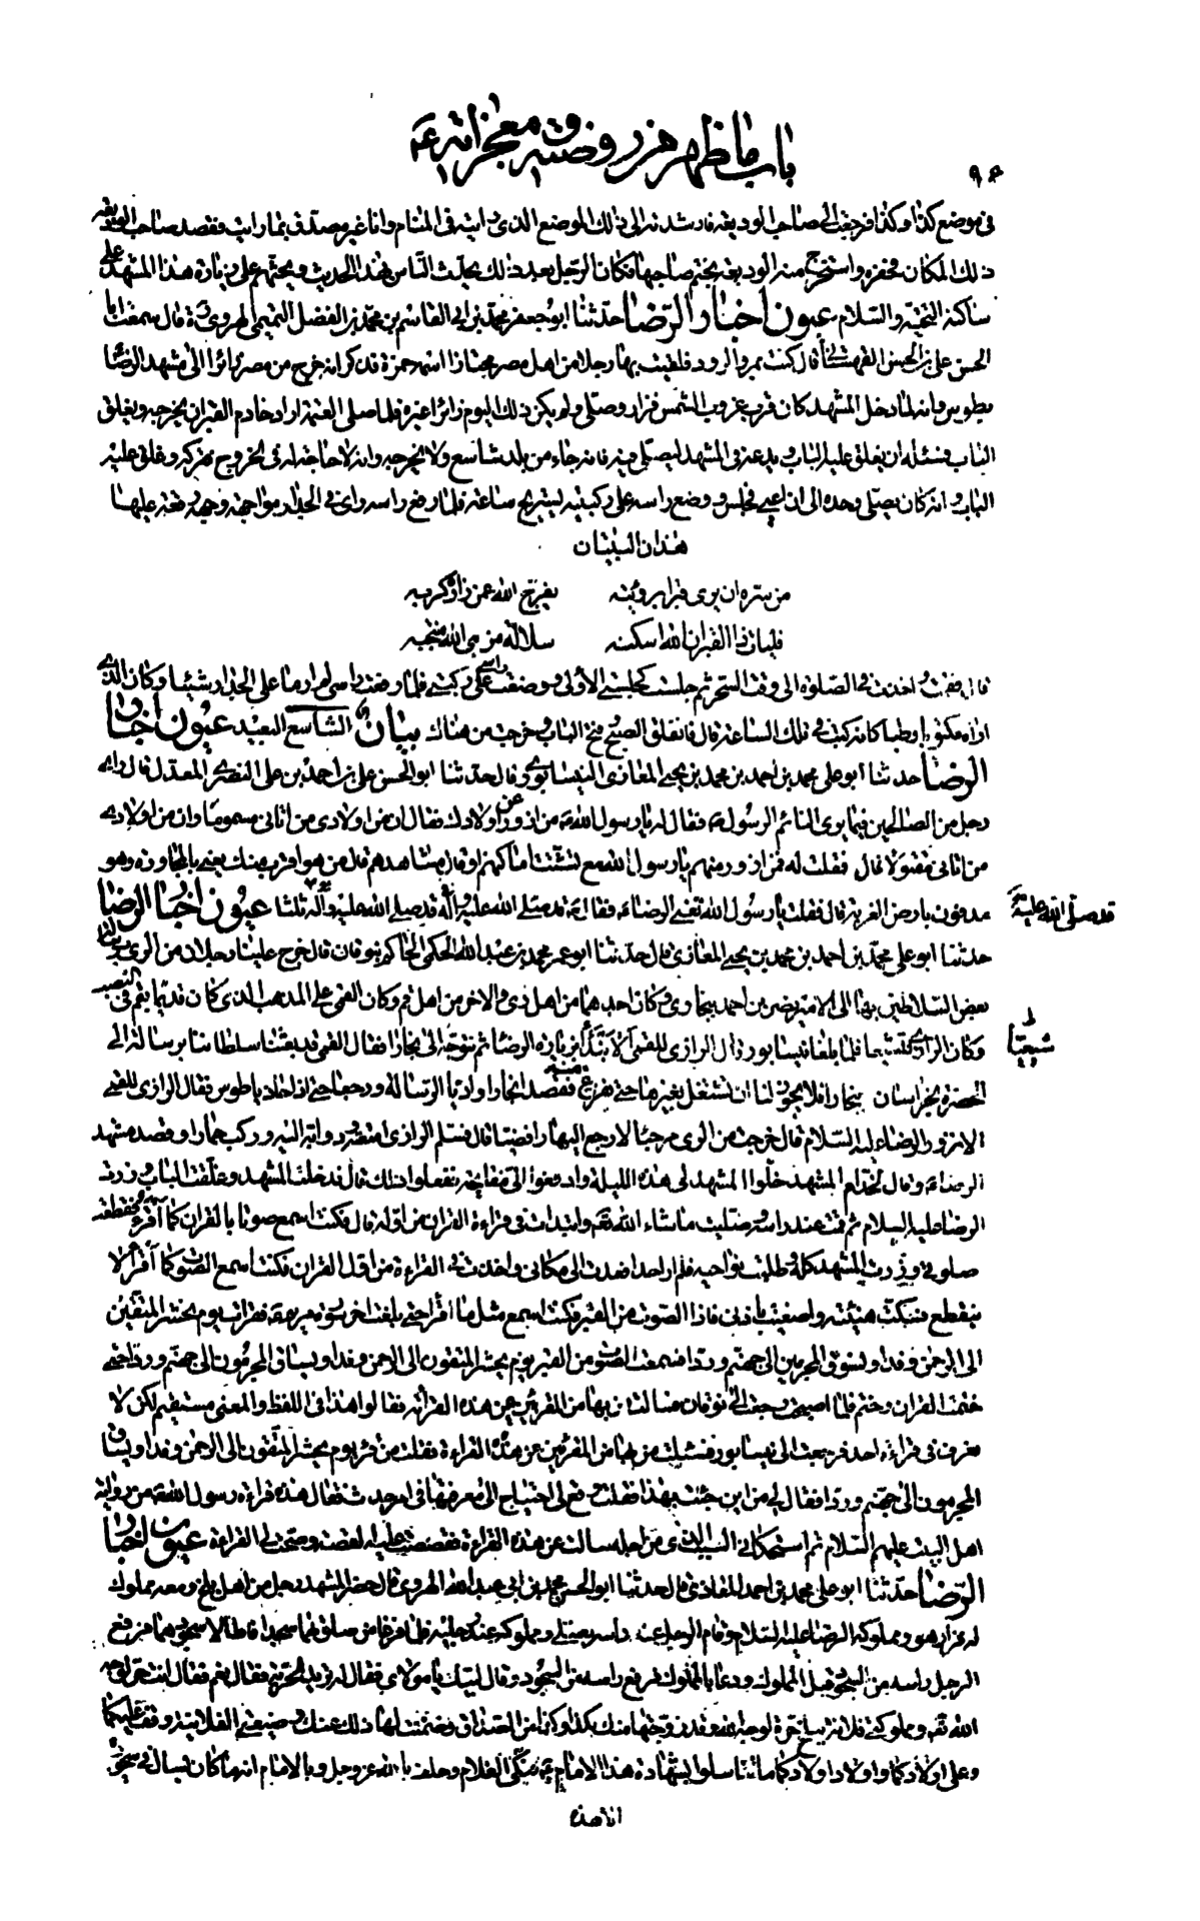 باب ما ظهر من روضته و معجزاته ع
٩٤
فى موضع كذا وكذا فرجعت الى صاحب الوديعة فارشدته الى ذلك الموضع الذى رايته فى المنام وانا غير مصدق بما رايت فقصد صاحب الوديعة
ذلك المكان فحفره واستخرج منه الوديعة بختم صاحبها فكان الرجل بعد ذلك يحدث الناس بهذا الحديث ويحثهم على زيارة هذا المشهد على
ساكنه التحية والسلام عيون اخبار الرضا حدثنا ابو جعفر محمد بن ابى القاسم بن محمد بن الفضل التميمى الهروى ره قال سمعت ابا
الحسن على بن الحسن القهستانى قال كنت بمرو الرود فلقيت بها رجلا من اهل مصر مجتازا اسمه حمزة فذكر انه خرج من مصر زائرا الى مشهد الرضا ع
بطوس وانه لما دخل المشهد كان قرب غروب الشمس فزار وصلى ولم يكن ذلك اليوم زائرا غيره فلما صلى العتمة اراد خادم القبر ان يخرجه ويغلق
الباب فسئله ان يغلق عليه الباب ويدعه فى المشهد ليصلى فيه فانه جاء من بلد شاسع ولا يخرجه وانه لا حاجة له فى الخروج فتركه وغلق عليه
الباب وانه كان يصلى وحده الى ان اعيى فجلس ووضع راسه على ركبتيه ليستريح ساعة فلما رفع راسه راى فى الجدار مواجهة وجهه رقعة عليها
هذان البيتان
من سره ان يرى قبرا برؤيته يفرج الله عمن زاره كربه
فليات ذا القبر ان الله اسكنه سلالة من نبى الله منتجبه
قال فقمت واخذت فى الصلوة الى وقت السحر ثم جلست كجلستى الأولى ووضعت راسى على ركبتى فلما رفعت راسى لم ار ما على الجدار شيئا وكان الذى
اراه مكتوبا رطبا كانه كتب فى تلك الساعة قال فانفلق الصبح وفتح الباب وخرجت من هناك بيان الشاسع البعيد عيون اخبار
الرضا حدثنا ابو على محمد بن احمد بن محمد بن يحيى المعاذى النيسابورى قال حدثنا ابو الحسن على بن احمد بن على البصرى المعدل قال راى
رجل من الصالحين فيما يرى النائم الرسول ص فقال له يا رسول الله ص من ازور من اولادك فقال ان من اولادى من اتانى مسموما وان من اولادى
من اتانى مقتولا قال فقلت له فمن ازور منهم يا رسول الله مع تشتت اماكنهم او قال مشاهدهم قال من هو اقرب منك يعنى بالمجاورة وهو
مدفون بارض الغربة قال فقلت يا رسول الله تعنى الرضا ع فقال ص قل صلى الله عليه وآله قل صلى الله عليه وآله ثلثا عيون اخبار الرضا
قل صلى الله عليه
حدثنا ابو على محمد بن احمد بن محمد بن يحيى المعاذى قال حدثنا ابو عمر محمد بن عبد الله الحكمى الحاكم بنوقان قال خرج علينا رجلان من الرى برسالة
بعض السلاطين بها الى الامير نصر بن احمد ببخارى وكان احدهما من اهل رى والاخر من اهل قم وكان القمى على المذهب الذى كان قديما بقم فى النصب
وكان الرازى متشيعا فلما بلغا نيسابور قال الرازى للقمى الا نبتدئ بزيارة الرضا ثم نتوجه الى بخارا فقال القمى قد بعثنا سلطاننا برسالة الى
شيعيا
الحضرة بخراسان ببخارا فلا يجوز لنا ان نشتغل بغيرها حتى نفرغ منه فقصدا بخارا واديا الرسالة ورجعا حتى اذا حاذيا طوس فقال الرازى للقمى
الا نزور الرضا عليه السلام قال خرجت من الرى مرجئا لا ارجع اليها رافضيا قال فسلم الرازى امتعته ودوابه اليه وركب حمارا وقصد مشهد
الرضا ع وقال لخدام المشهد خلوا المشهد لى هذه الليلة وادفعوا الى مفاتيحه ففعلوا ذلك قال فدخلت المشهد وغلقت الباب وزرت
الرضا عليه السلام ثم قمت عند راسه وصليت ما شاء الله تعالى وابتدات فى قراءة القران من اوله قال فكنت اسمع صوتا بالقران كما اقرء فقطعت
صلوتى وزرت المشهد كله وطلبت نواحيه فلم ار احدا فعدت الى مكانى واخذت فى القراءة من اول القران فكنت اسمع الصوت كما اقرأ لا
ينقطع فسكت هنيئة واصغيت باذنى فاذا الصوت من القبر فكنت اسمع مثل ما اقرأ حتى بلغت اخر سورة مريم ع فقرات يوم نحشر المتقين
الى الرحمن وفدا ونسوق المجرمين الى جهنم وردا فسمعت الصوت من القبر يوم يحشر المتقون الى الرحمن وفدا ويساق المجرمون الى جهنم وردا حتى
ختمت القران وختم فلما اصبحت رجعت الى نوقان فسالت من بها من المقرئين عن هذه القراءة فقالوا هذا فى اللفظ والمعنى مستقيم لكن لا
نعرف فى قراءة احد فرجعت الى نيسابور فسئلت من بها من المقرئين عن هذه القراءة فقلت من قرء يوم يحشر المتقون الى الرحمن وفدا ويساق
المجرمون الى جهنم وردا فقال لى من اين جئت بهذا فقلت وقع لى احتياج الى معرفتها فى امر حدث فقال هذه قراءة رسول الله ص من رواية
اهل البيت عليهم السلام ثم استحكانى السبب الذى من اجله سالت عن هذه القراءة فقصصت عليه القصة وصحت لى القراءة عيون اخبار
الرضا حدثنا ابو على محمد بن احمد المعاذى قال حدثنا ابو الحسن محمد بن ابى عبد الله الهروى قال حضر المشهد رجل من اهل بلخ ومعه مملوك
له فزار هو ومملوكه الرضا عليه السلام وقام الرجل عند راسه يصلى ومملوكه عند رجليه فلما فرغا من صلوتهما سجدا فاطالا سجودهما فرفع
الرجل راسه من السجود قبل المملوك ودعا بالمملوك فرفع راسه من السجود وقال لبيك يا مولاى فقال له تريد الحرية فقال نعم فقال انت حر لوجه
الله تعالى ومملوكتى فلانة ببلخ حرة لوجه الله وقد زوجتها منك بكذا وكذا من الصداق وضمنت لها ذلك عنك وضيعتى الفلانية وقف عليكما
وعلى اولادكما واولاد اولادكما ما تناسلوا بشهادة هذا الامام ع فبكى الغلام وحلف بالله عز وجل وبالامام انه ما كان يسال فى سجوده
الا هذه